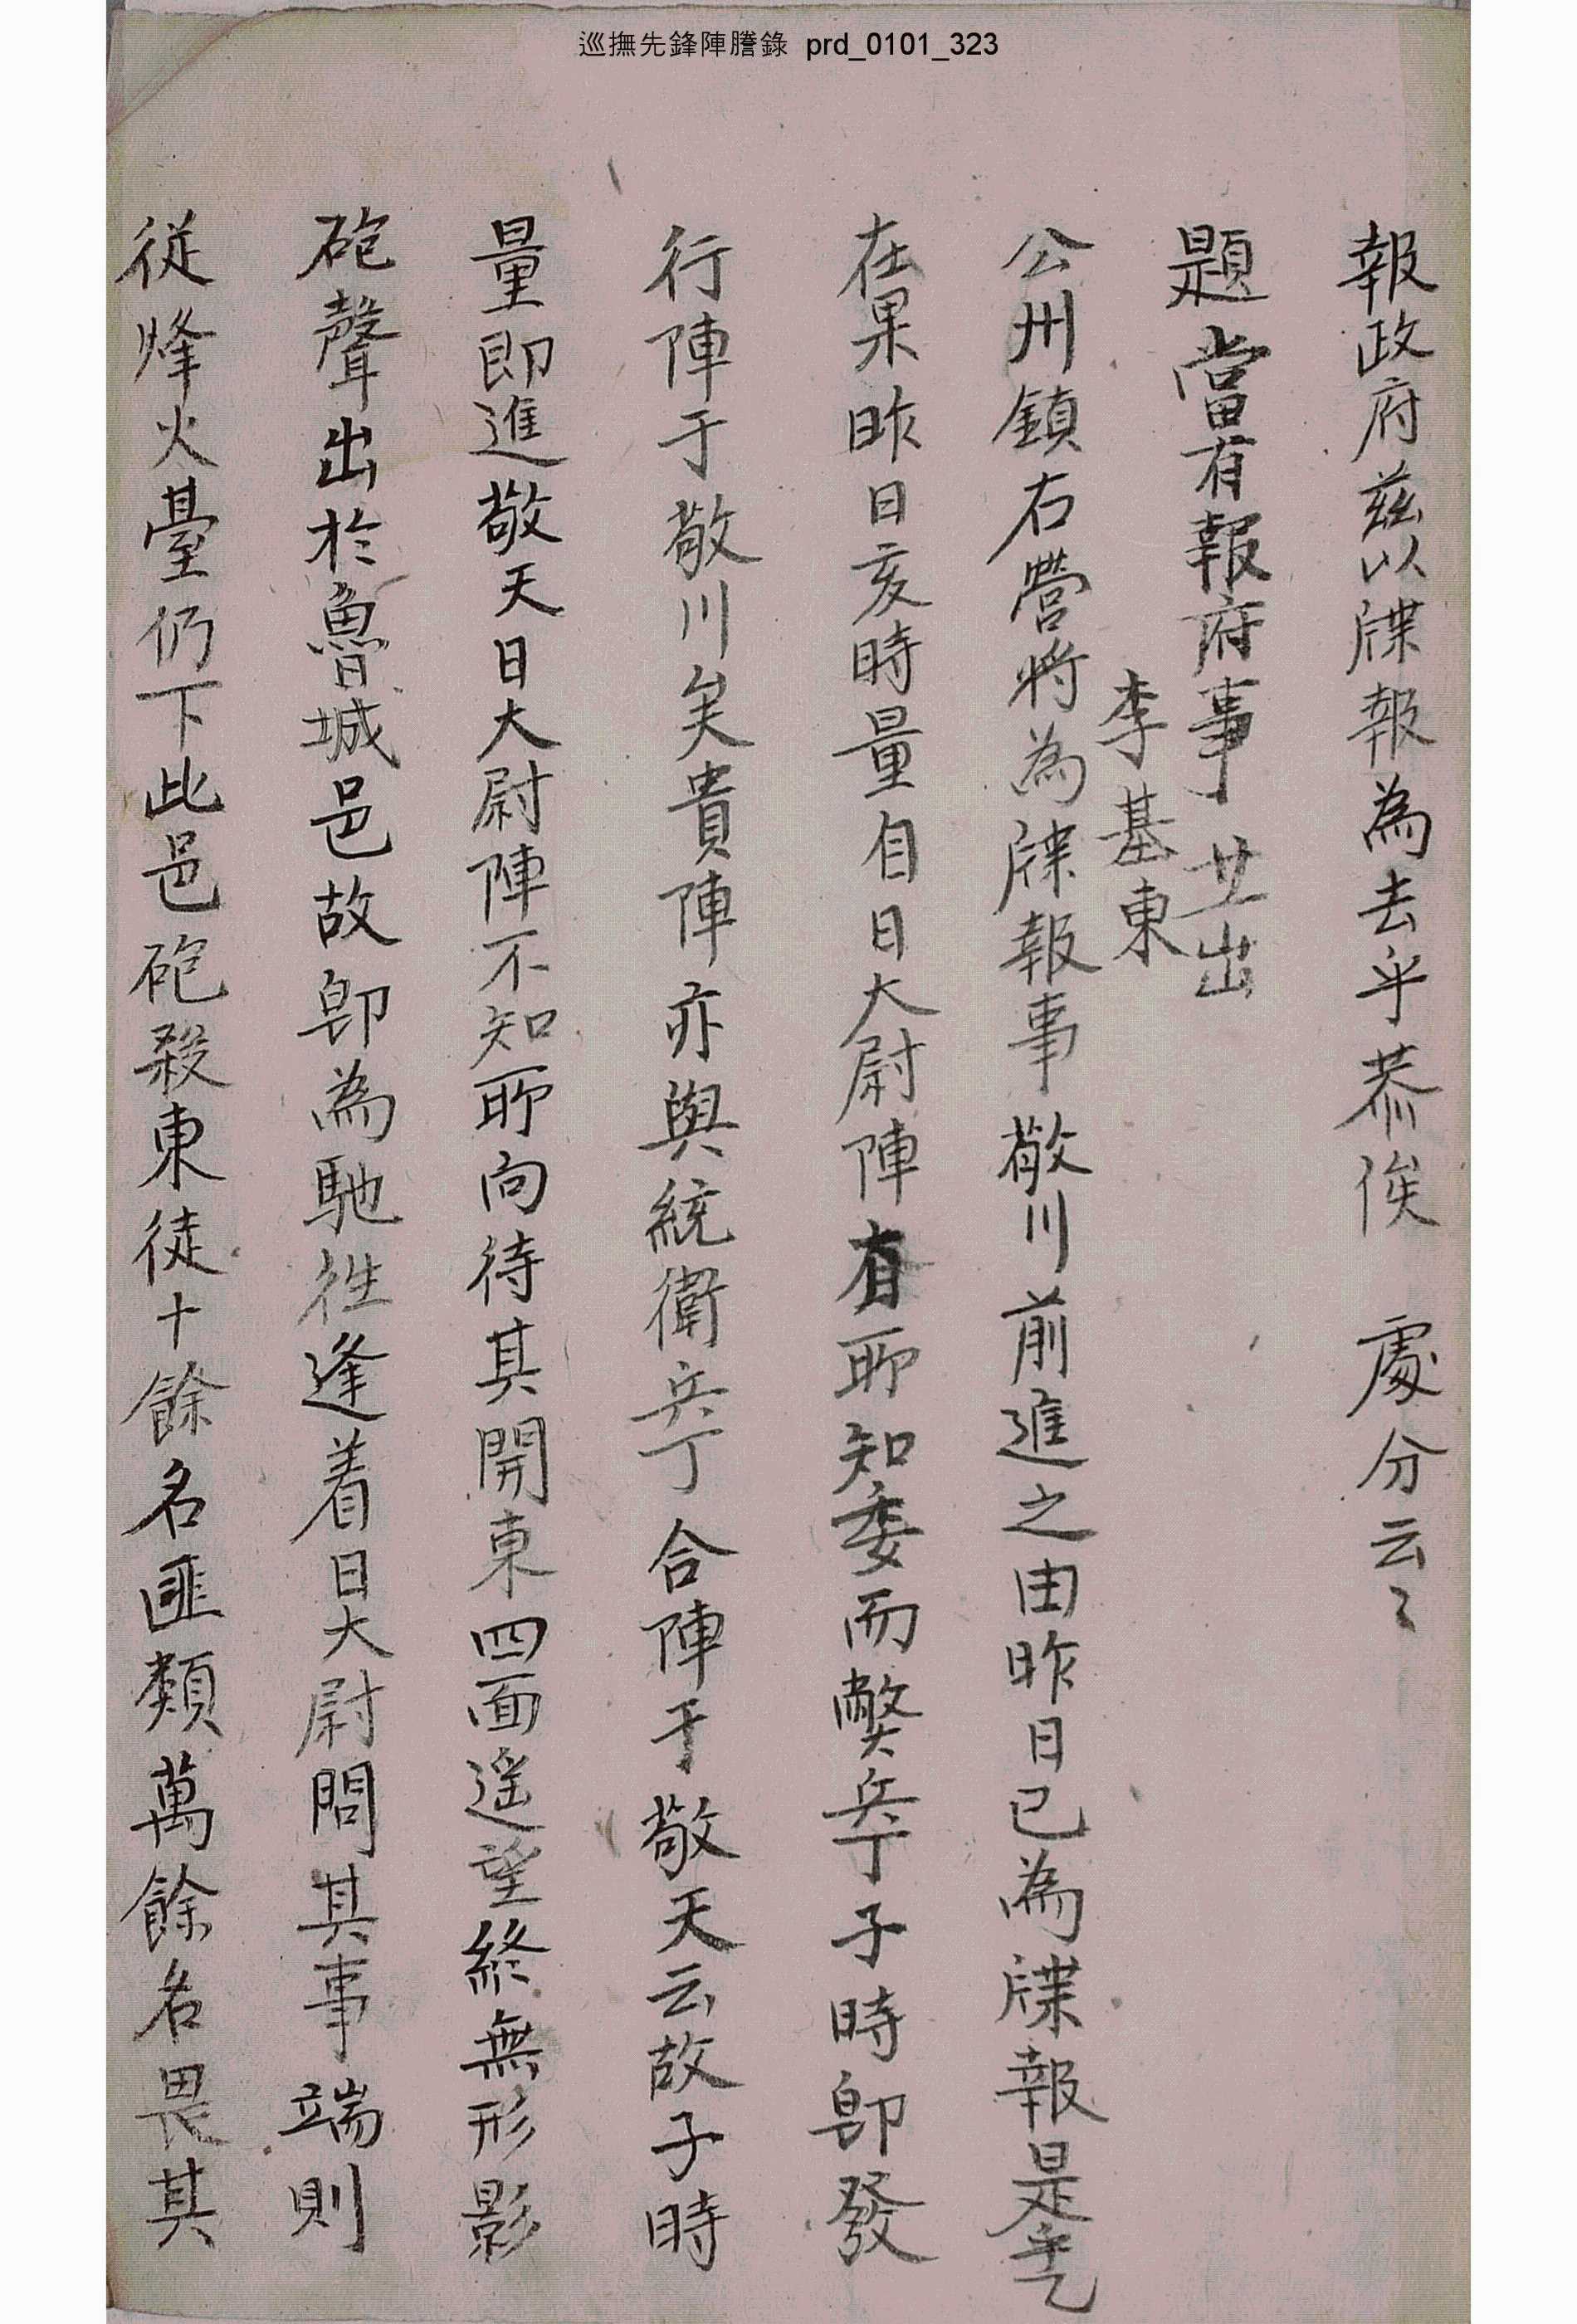 巡撫先鋒陣謄錄 prd_0101_323
報政府茲以牒報為去乎恭俟 處分云〻
題當有報府事 廿一出
李基東
公州鎮右營將為牒報事敬川前進之由昨日已為牒報是乎乙
在果昨日亥時量自日大尉陣有所知委而弊兵丁子時卽發
行陣于敬川矣貴陣亦與統衛兵丁合陣于敬天云故子時
量即進敬天日大尉陣不知所向待其開東四面遙望終無形影
砲聲出於魯城邑故卽為馳往逢着日大尉問其事端則
從烽火臺仍下此邑砲殺東徒十餘名匪類萬餘名畏其